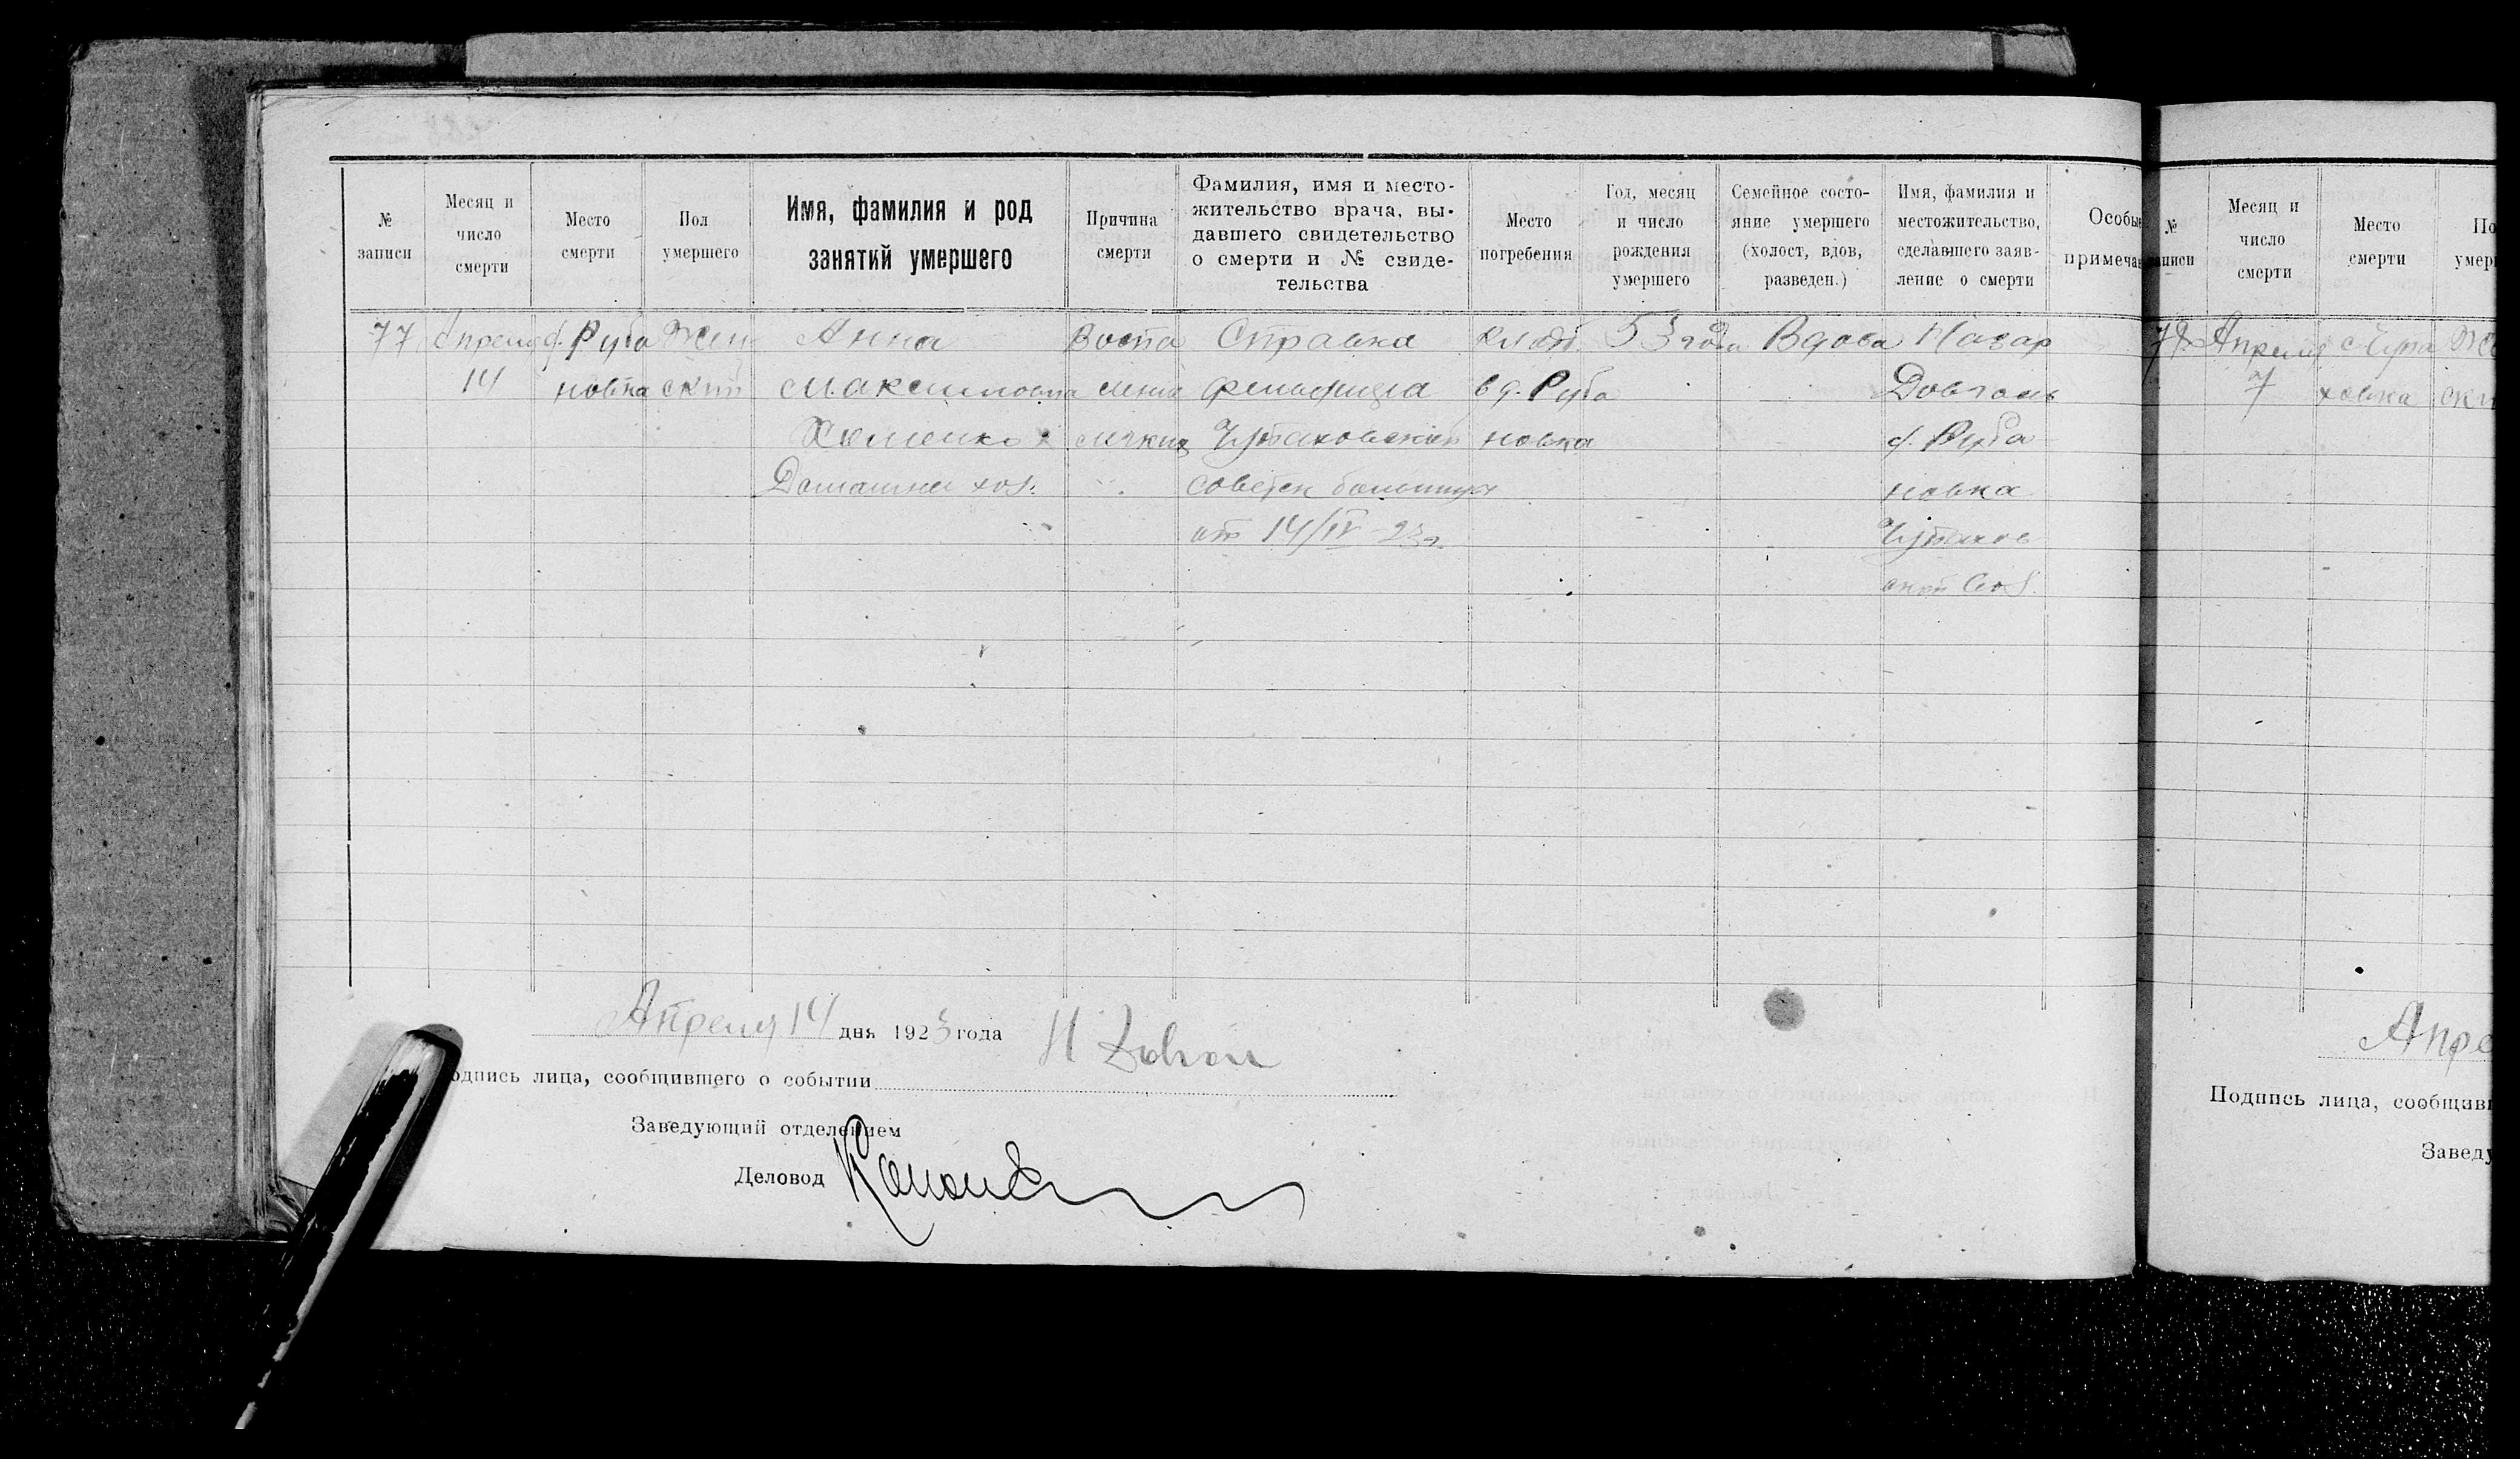 № записи
Месяц и число смерти
Место смерти
Пол умершего
Имя, фамилия и род занятий умершего
Причина смерти
Фамилия, имя и место-
жительство врача, вы-
давшего свидетельство
о смерти и № свиде-
тельства
Место погребения
Год, месяц и число рождения умершего
Семейное состо-
яние умершего
(холост, вдов,
разведен.)
Имя, фамилия и
местожительство,
сделавшего заяв-
ление о смерти
Особые
примеча
77
Апреля
14
д. Руба
новка
Жен
ский
Анна
Максимовна
Хоменко
Домашн хоз.
Воспа
ление
легких
Справка
фельдшера
Чутаковской
советск больницы
от 14/IV–23г.
Кладб.
в д. Руба
новка
53 года
Вдова
Назар
Довгань
д. Руба
новка
Чутаков
ской
Апреля 14 дня 1923 года
одпись лица, сообщившего о событии
Заведующий отделением
Деловод
№
записи
Месяц и
число
смерти
Место
смерти
По
умер
78
Апреля
7
ховка
Апре
Подпись лица, сообщив
Заведу